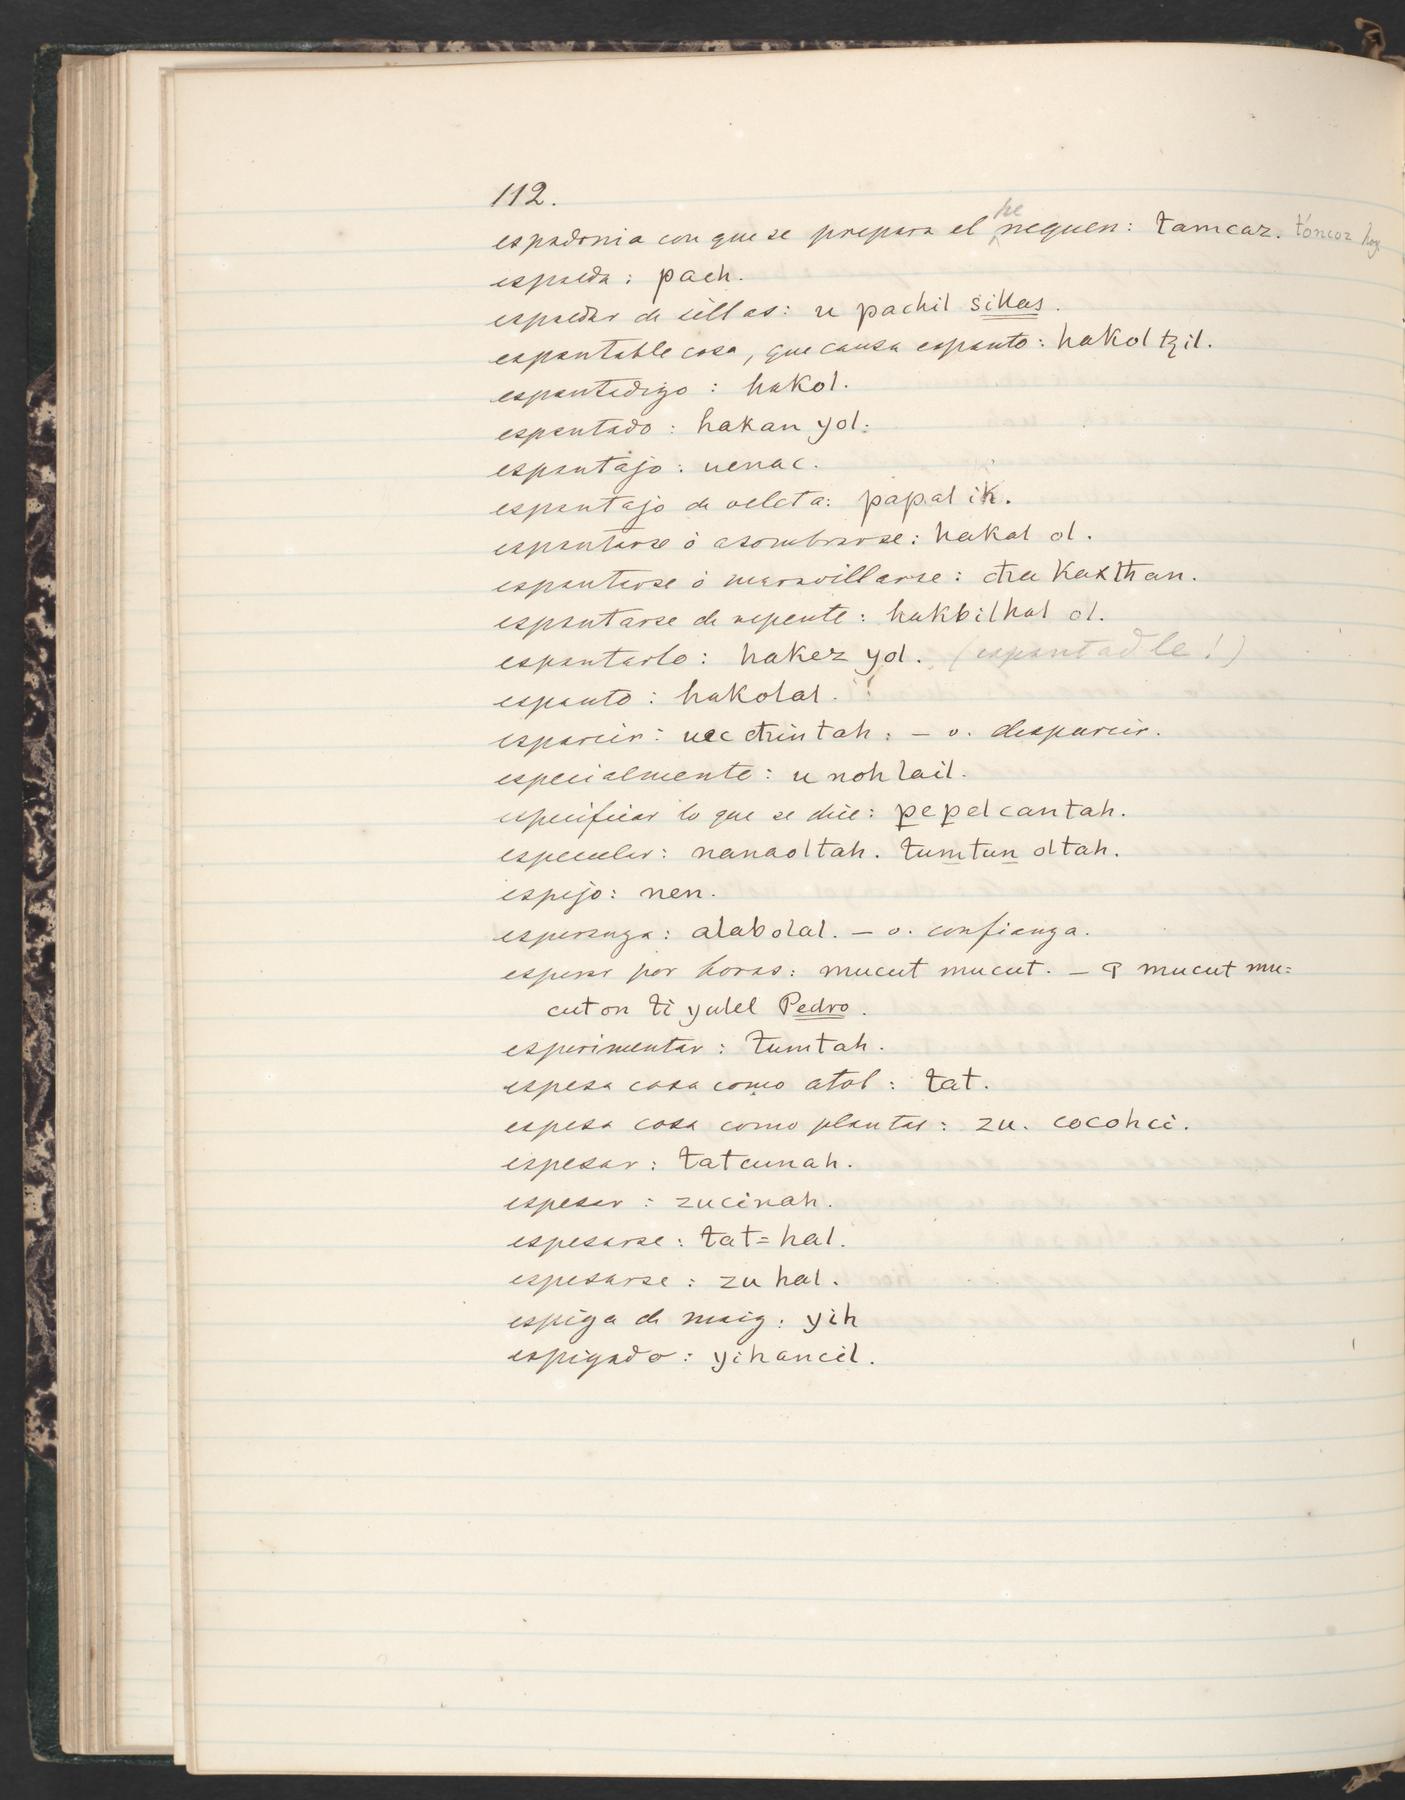 112.
espadonia con que se prepara el henequen: tamcaz. tóncoz hoy
espalda: pach.
espaldar de sillas: u pachil sillas.
espantable cosa, que causa espanto: hakoltzil.
espantadizo: hakol.
espantado: hakan yol.
espantajo: uenac.
espantajo de veleta: papal ik.
espantarse ó asombrarse: hakal ol.
espantarse ó maravillarse: cħa kaxtħan.
espantarse de repente: hakbilhal ol.
espantarlo: hakez yol. (espantadle!)
espanto: hakolal.
esparcir: uec cħintah. – v. desparcir.
especialmente: u nohlail.
especificar lo que se dice: pepelcantah.
especular: nanaoltah. tumtun oltah.
espejo: nen.
esperanza: alabolal. – v. confianza.
esperar por horas: mucut mucut. – mucut mu=
cuton ti yulel Pedro.
esperimentar: tumtah.
espesa cosa como atol: tat.
espesa cosa como plantas: zu. cocohci.
espesar: tatcunah.
espesar: zucinah.
espesarse: tat=hal.
espesarse: zu hal.
espiga de maiz: yih
espigado: yihancil.